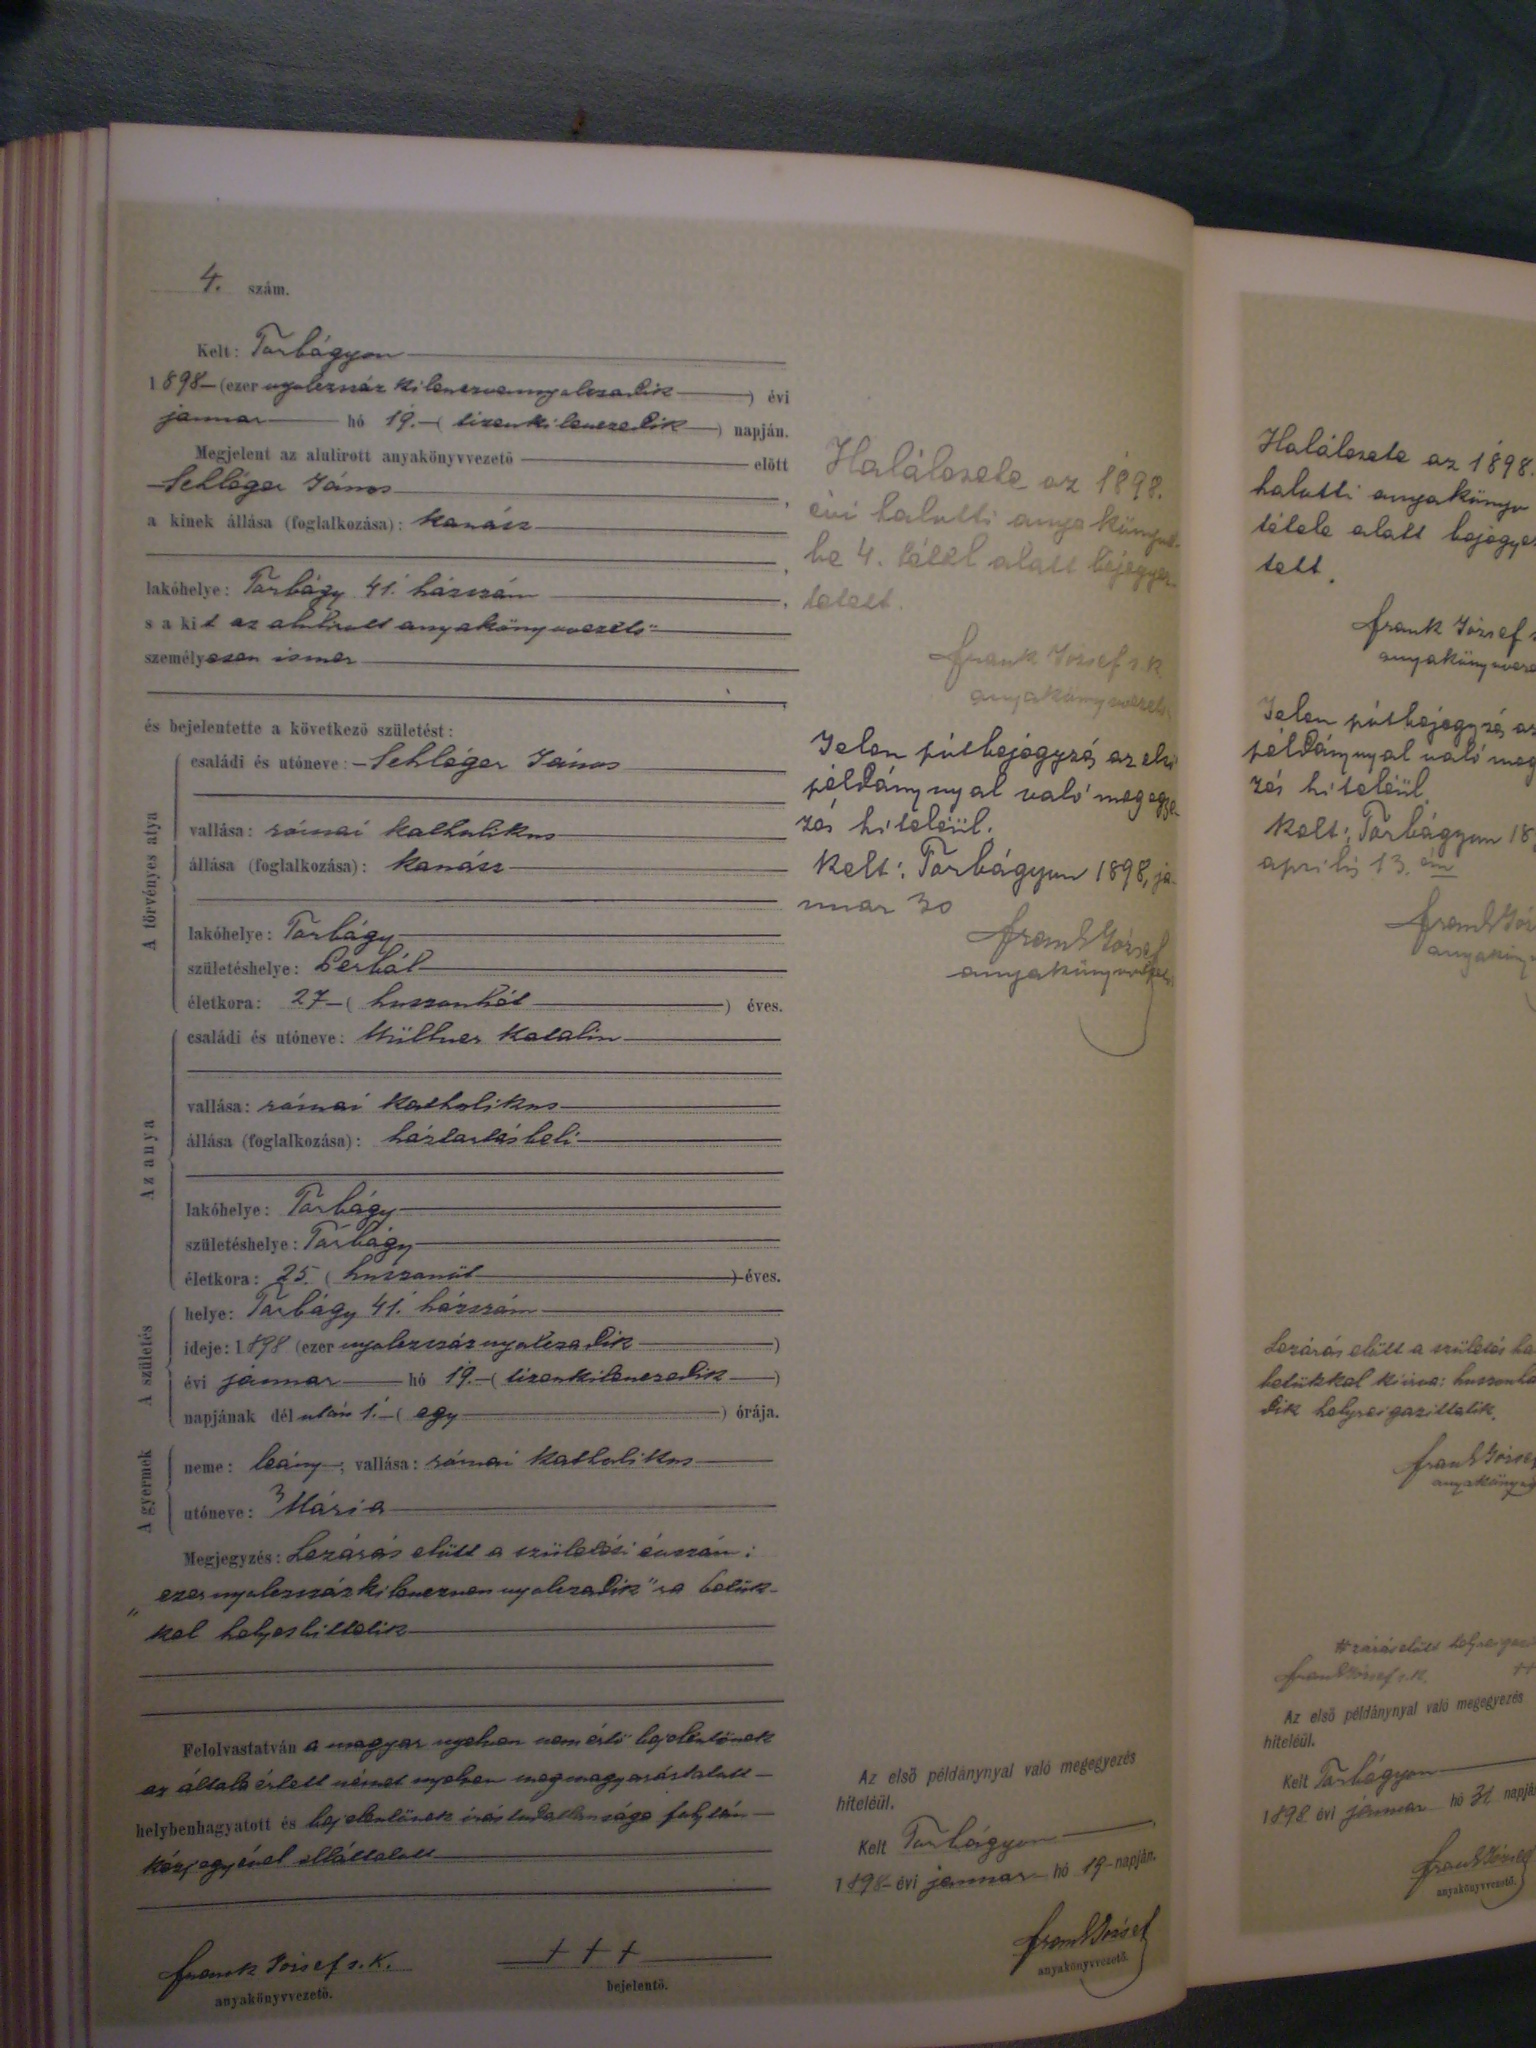 4. szám.
Kelt: Torbágyon
1898 (ezer nyolczszáz kilenczvennyolczadik) évi
januar hó 19. (tizenkilenczedik) napján.
Megjelent az alulirott anyakönyvvezető előtt
Schléger János,
a kinek állása (foglalkozása): kanász
lakóhelye: Torbágy 41. házszám,
s a kit az alulirott anyakönyvvezető
személyesen ismer
és bejelentette a következő születést:
A törvényes atya
családi és utóneve: Schléger János
vallása: római katholikus
állása (foglalkozása): kanász
lakóhelye: Torbágy
születéshelye: Perbál
életkora: 27 (huszonhét) éves.
Az anya
családi és utóneve: Müllner Katalin
vallása: római katholikus
állása (foglalkozása): háztartásbeli
lakóhelye: Torbágy
születéshelye: Torbágy
életkora: 25. (huszonöt) éves.
A születés
helye: Torbágy 41. házszám
ideje: 1898 (ezer nyolczszáz nyolczadik)
évi januar hó 19. (tizenkilenczedik)
napjának dél után 1. (egy) órája.
A gyermek
neme: leány; vallása: római katholikus
utóneve: Mária
Megjegyzés: Lezárás előtt a születési évszám:
"ezernyolczszázkilenczvennyolczadik"ra betük-
kel helyesbittetik
Felolvastatván a magyar nyelven nem értő bejelentőnek
az általa értett német nyelven megmagyaráztatott
helybenhagyatott és bejelentőnek irástudatlansága folytán
kézjegyével elláttatott
Frank József s. k.
anyakönyvvezető.
+++
bejelentő.
Halálesete az 1898.
évi halotti anyakönyv-
be 4. tétel alatt bejegyez-
tetett.
Frank József s. k.
anyakönyvvezető
Jelen utóbejegyzés az első
példánynyal való megegye-
zés hiteléül.
Kelt: Torbágyon 1898, ja-
nuar 30
Frank József
anyakönyvvezető
Az első példánynyal való megegyezés
hiteléül.
Kelt Torbágyon
1898 évi januar hó 19 napján.
Frank József
anyakönyvvezető.
Halálesete az 1898.
halotti anyakönyv
tétele alatt bejegyez
tett.
Frank József s
anyakönyvveze
Jelen utóbejegyzés az
példánynyal való meg
zés hiteléül.
Kelt: Torbágyon 18
április 13. án
Frank Józ
Lezárás előtt a születés ha
betükkel kiirva: huszonha
dik helyreigazittatik.
Frank József
anyakönyv
Frank József s. k.
Az első példánynyal való megegyezés
hiteléül.
Kelt Torbágyon
1898 évi januar hó 31 napjá
Frank József
anyakönyvvezető.